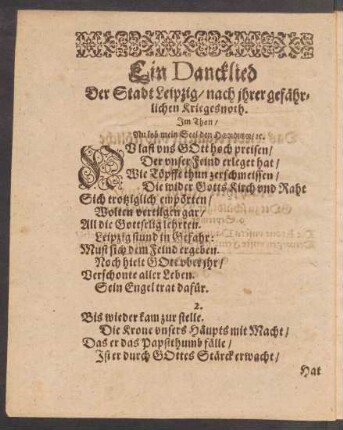 Ein Dancklied
Der Stadt Leipzig/ nach jhrer gefähr-
lichen Kriegesnoth.
Im Thon/
Nu lob mein Seel den HErren/ etc.
NU last vns GOtt hoch preisen/
Der vnser Feind erleget hat/
Wie Töpffe thun zerschmeissen/
Die wider Gotts Kirch vnd Raht
Sich trotziglich empörten/
Wolten vertilgn gar/
All die Gottselig lehrten.
Leipzig stund in Gefahr:
Must sich dem Feind ergeben.
Noch hielt GOtt vber jhr/
Verschonte aller Leben.
Sein Engel trat dafür.
2.
Bis wieder kam zur stelle.
Die Krone vnsers Häupts mit Macht/
Das er das Papstthumb fälle/
Ist er durch GOttes Stärck erwacht/
Hat